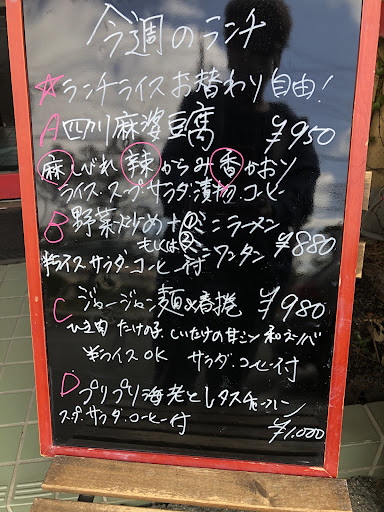 今週のランチ
☆ランチライスお替わり自由!
A 四川麻婆豆腐 ¥950
麻しびれ 辣からみ 香かおり
ライス.スープ.サラダ.漬物.コーヒー
B 野菜炒め+①ミニラーメン
もしくは②ミニワンタン ¥880
半ライス サラダ.コーヒー付
C ジャージャン麺&春捲 ¥980
ひき肉 たけの子 しいたけの甘ミソ 和えソバ
半ライスOK サラダ.コーヒー付
D プリプリ海老とレタスチャーハン
スープ.サラダ.コーヒー付 ¥1.000